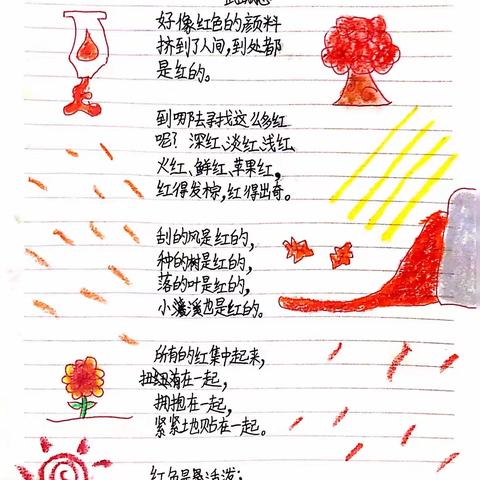 好像红色的颜料
挤到了人间,到处都
是红的。
到哪去寻找这么多红
呢?深红、淡红、浅红、
火红、鲜红、苹果红,
红得发棕,红得出奇。
刮的风是红的,
种的树是红的,
落的叶是红的,
小溪也是红的。
所有的红集中起来,
在一起,
拥抱在一起,
紧紧地贴在一起。
红色是
活泼;